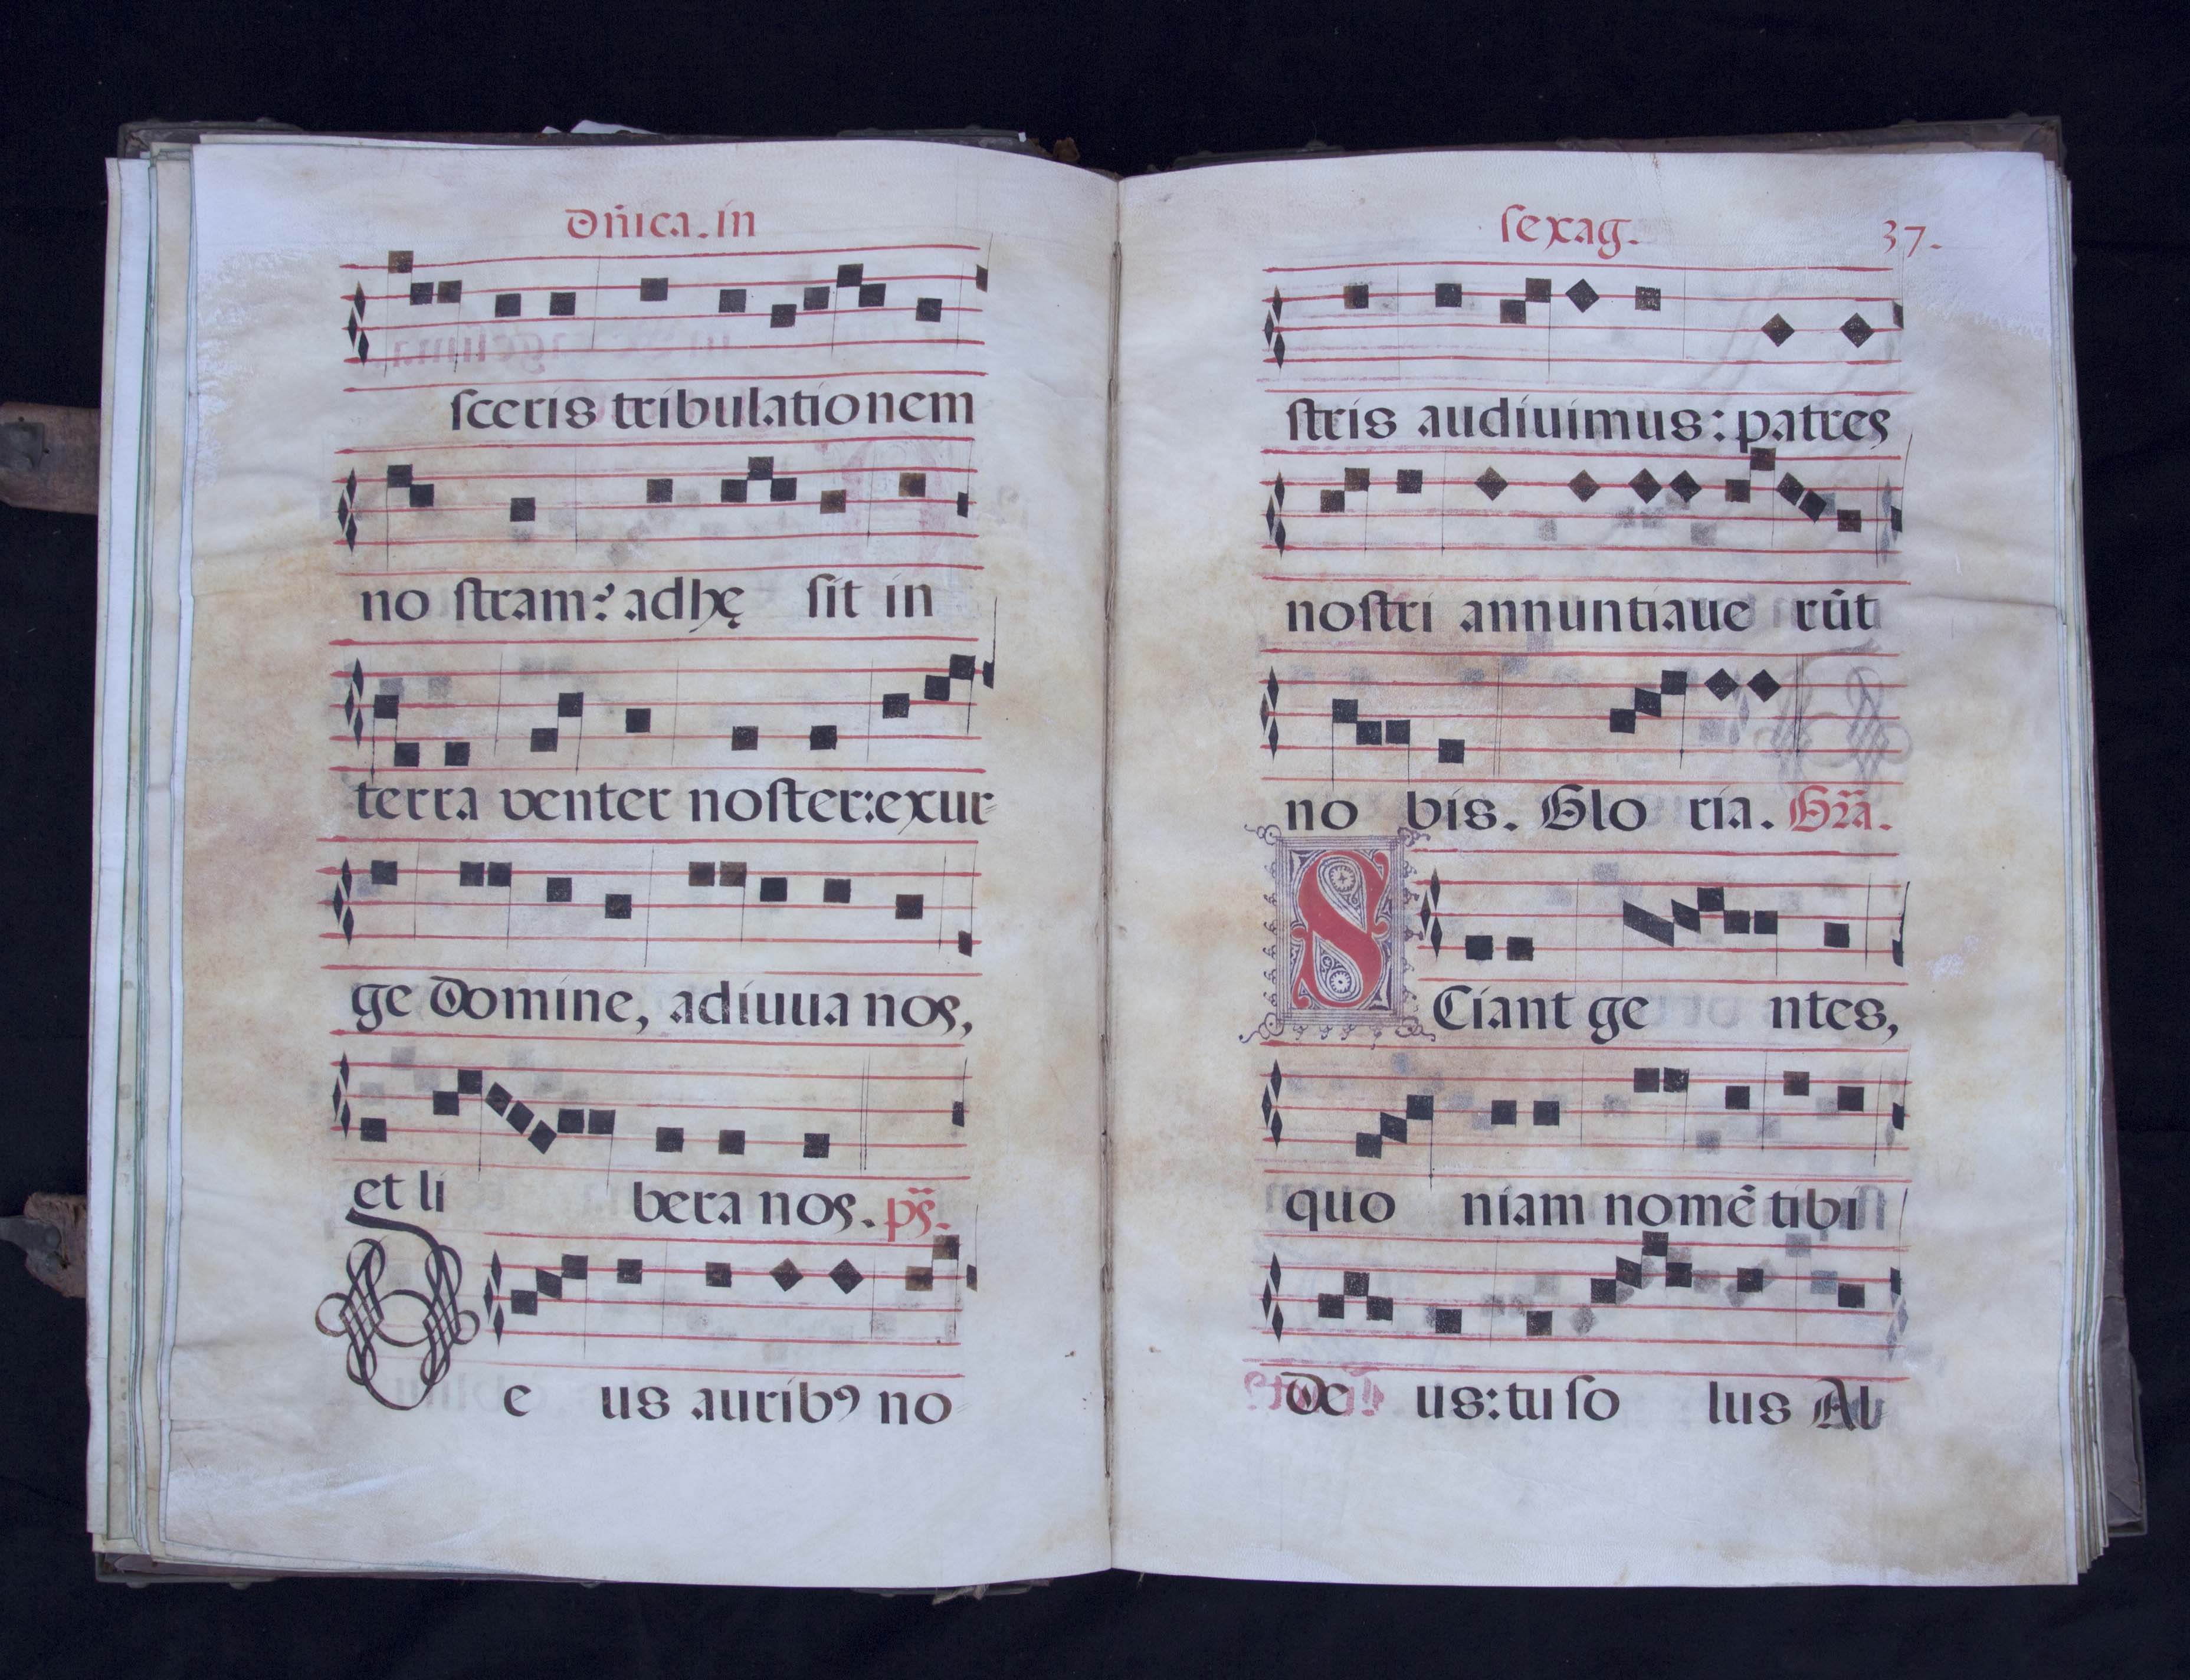 Dn̄ica. in
ſceris tribulationem
no ſtram: adhę ſit in
terra venter noſter: exur-
ge Domine, adiuua nos,
et li bera nos. ps̄.
De us auribꝰ no
ſexag. 37.
ſtris audiuimus: patres
noſtri annuntiaue rūt
no bis. Glo ria. Gr̄a.
SCiant ge ntes,
quo niam nomē tibi
De us: tu ſo lus Al